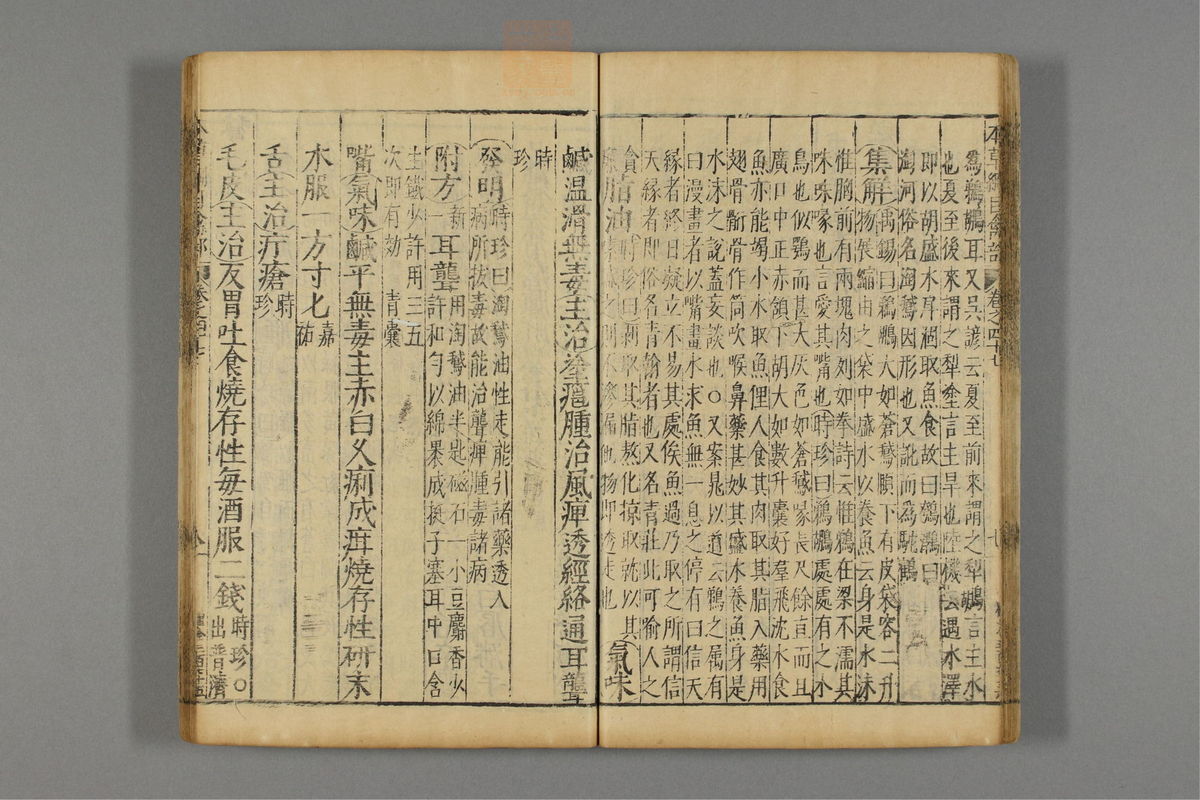 爲鵜鶘耳又吳諺云夏至前來謂之犁鶘言主水
也夏至後來謂之犁塗言主旱也陸機云遇水澤
即以胡盛水戽涸取魚食故曰鴮鸅曰
淘河俗名淘鵝因形也又訛而爲駝鶴
集解禹錫曰鵜鶘大如蒼鵝頤下有皮袋容二升
物展縮由之袋中盛水以養魚云身是水沫
惟胸前有兩塊肉列如拳詩云惟鵜在梁不濡其
咮咮喙也言愛其嘴也時珍曰鵜鶘處處有之水
鳥也似鶚而甚大灰色如蒼鵝喙長尺餘直而且
廣口中正赤頷下胡大如數升囊好群飛沈水食
魚亦能竭小水取魚俚人食其肉取其脂入藥用
翅骨骱骨作筒吹喉鼻藥甚妙其盛水養魚身是
水沫之說蓋妄談也○又案晁以道云鵜之属有
曰漫畫者以嘴畫水求魚無一息之停有曰信天
緣者終日凝立不易其處俟魚過乃取之所謂信
天緣者即俗名青翰者也又名青莊此可喻人之
貪
脂油時珍曰剥取其脂熬化掠取就以其
氣味
鹹溫滑無毒主治癰腫治風痺透經絡通耳聾
時
珍
發明時珍曰淘鵝油性走能引諸藥透入
病所拔毒故能治聾痺腫毒諸病
附方新一耳聾用淘鵝油半匙磁石一小豆麝香少
許和勻以綿裹成挺子塞耳中口含
生鐵少許用三五
次即有効青囊
嘴氣味鹹平無毒主赤白久痢成疳燒存性研末
水服一方寸匕嘉
祐
舌主治疔瘡時
珍
毛皮主治反胃吐食燒存性每酒服二錢時珍○
出普濟